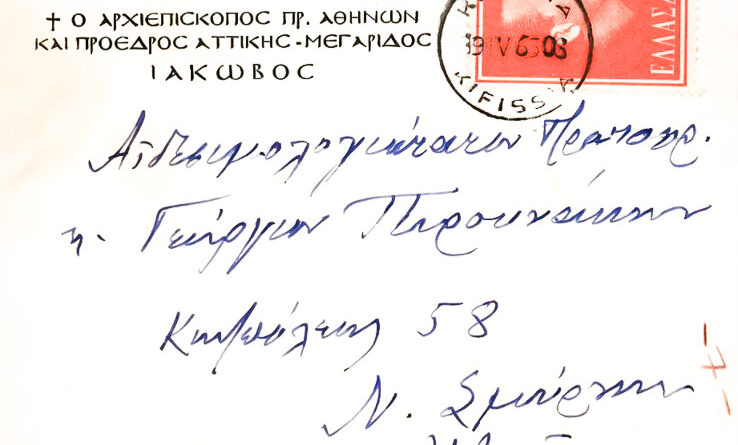 † Ο ΑΡΧΙΕΠΙΣΚΟΠΟΣ ΠΡ. ΑΘΗΝΩΝ
ΚΑΙ ΠΡΟΕΔΡΟΣ ΑΤΤΙΚΗΣ-ΜΕΓΑΡΙΔΟΣ
ΙΑΚΩΒΟΣ
ΕΛΛΑΣ
19 IV 65 08
KIFISSIA
Αἰδεσιμολογιώτατον Πρωτοπρ.
κ. Γεώργιον Πυρουνάκην
58
Ν. Σμύρνην